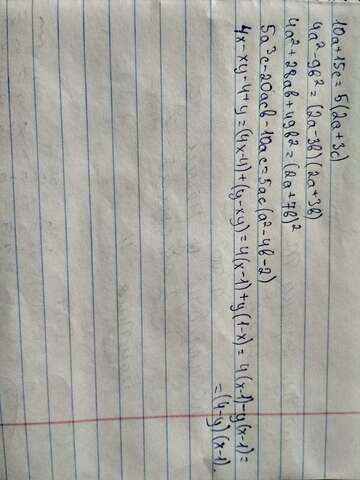 10a+15c=5(2a+3c)
4a²-9b²=(2a-3b)(2a+3b)
4a²+28ab+49b²=(2a+7b)²
5a³c-20acb-10ac=5ac(a²-4b-2)
4x-xy-4+y=(4x-4)+(y-xy)=4(x-1)+y(1-x)=4(x-1)-y(x-1)=
=(4-y)(x-1).